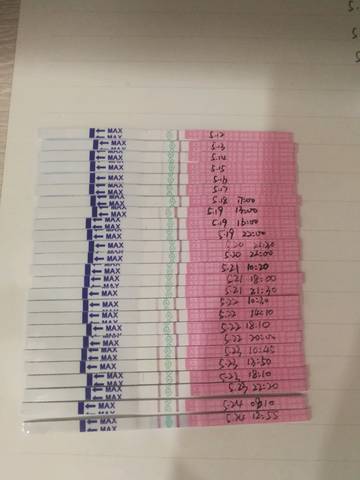 5.
5
5
MAX 5.12
MAX 5.13
MAX 5.14
MAX 5.15
MAX 5.16
MAX 5.17
MAX 5.18 17:00
MAX 5.19 13:00
MAX 5.19 16:00
MAX 5.19 22:00
MAX 5.20
MAX 5.20 22:00
MAX 5.21 10:20
MAX 5.21 18:00
MAX 5.21 21:30
MAX 5.22 10:30
MAX 5.22 14:10
MAX 5.22 18:10
MAX 5.22 20:00
MAX 5.23 10:45
MAX 5.23 13:50
MAX 5.23 18:10
MAX 5.23 22:20
MAX 5.24
MAX 5.24 12:55